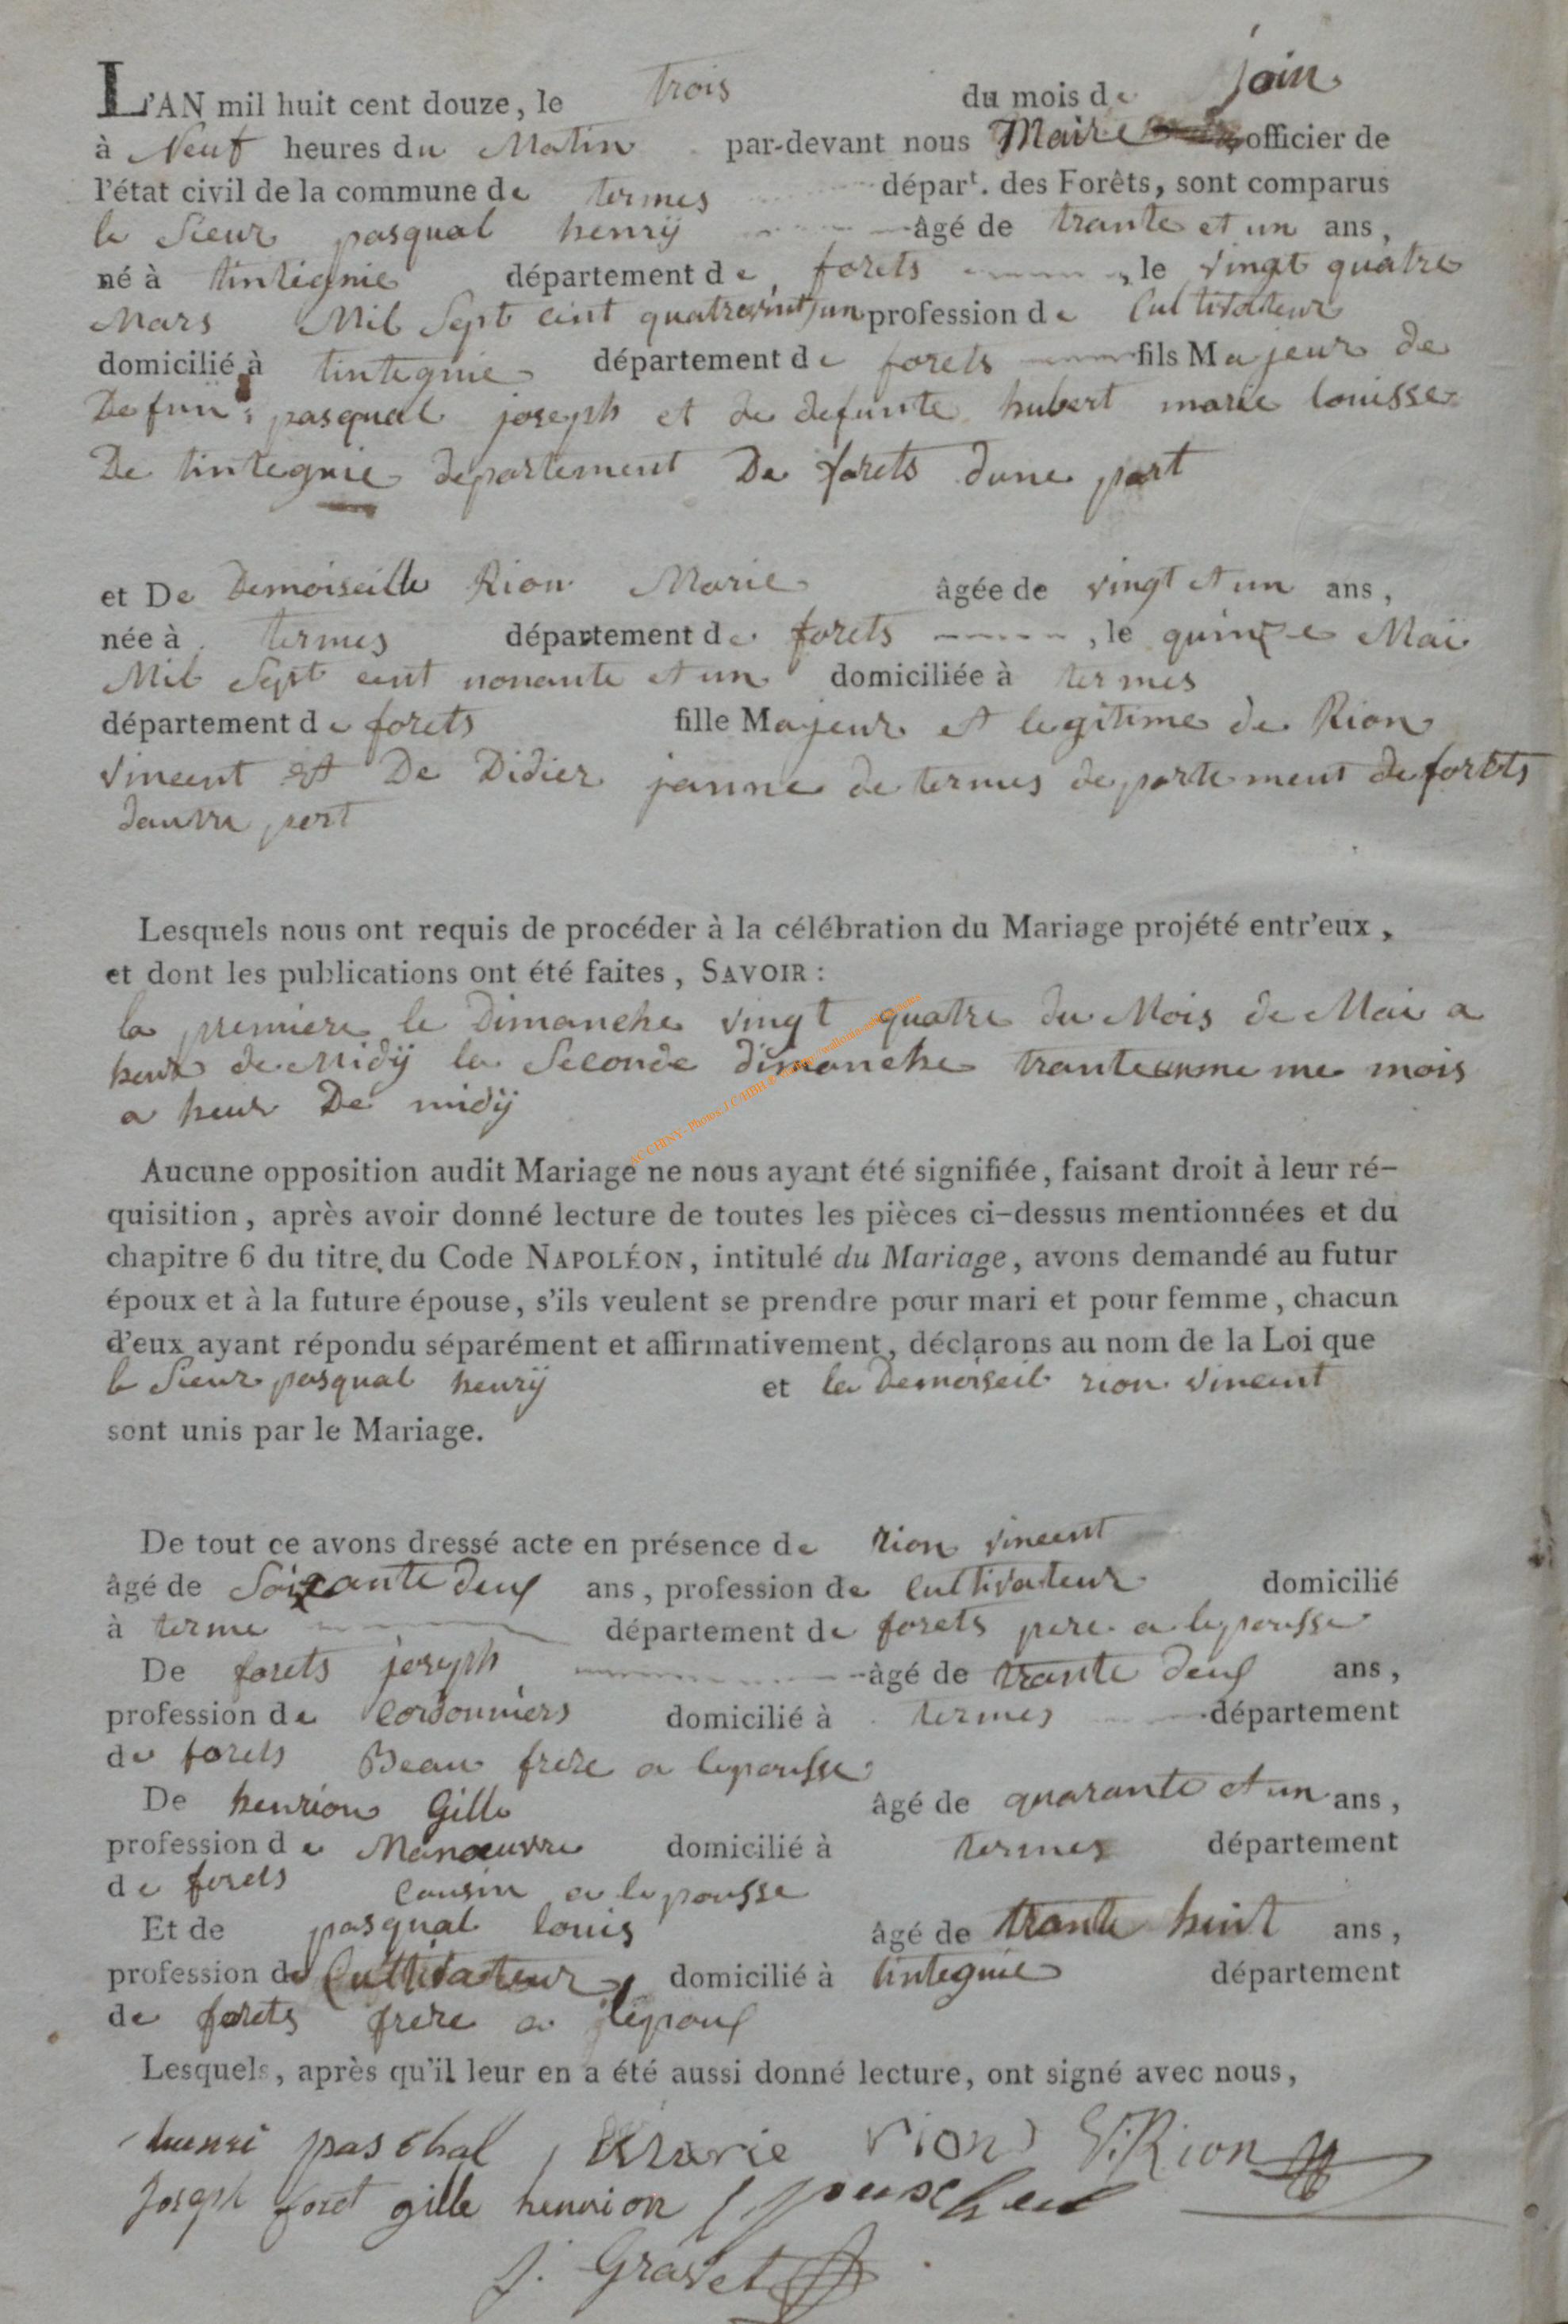 L'AN mil huit cent douze, le trois du mois de join
à Neuf heures du Matin par-devant nous Maire officier de
l'état civil de la commune de termes départ. des Forêts, sont comparus
le Sieur pasqual henrÿ âgé de trante et un ans,
né à tintignie département de forets, le vingt quatre
Mars Mil Sept cent quatrevint un profession de Cultivateur
domicilié à tintegnie département de forets fils Majeur de
Defun pasqual joseph et de defunte hubert marie louisse
De tintegnie departement De forets dune part
et De Demoiseille Rion Marie âgée de vingt et un ans,
née à termes département de forets, le quinze Mai
Mil Sept cent nonante et un domiciliée à termes
département de forets fille Majeur et legitime de Rion
vincent et De Didier janne de termes departement de forets
dautre part
Lesquels nous ont requis de procéder à la célébration du Mariage projété entr'eux,
et dont les publications ont été faites, SAVOIR :
la premiere le Dimanche vingt quatre du Mois de Mai a
heur de Midÿ la Seconde dimanche trante me mois
a heur De midÿ
Aucune opposition audit Mariage ne nous ayant été signifiée, faisant droit à leur ré-
quisition, après avoir donné lecture de toutes les pièces ci-dessus mentionnées et du
chapitre 6 du titre du Code NAPOLÉON, intitulé du Mariage, avons demandé au futur
époux et à la future épouse, s'ils veulent se prendre pour mari et pour femme, chacun
d'eux ayant répondu séparément et affirmativement, déclarons au nom de la Loi que
le Sieur pasqual henrÿ et la Demoiseil rion vincent
sont unis par le Mariage.
De tout ce avons dressé acte en présence de rion vincent
âgé de Soixante deux ans, profession de Cultivateur domicilié
à terme département de forets pere a lepousse
De forets joseph âgé de trante deux ans,
profession de Cordonniers domicilié à termes département
de forets Beau frere a lepousse
De henrion Gille âgé de quarante et un ans,
profession de Manœuvre domicilié à termes département
de forets Cousin a lepousse
Et de pasqual louis âgé de trante huit ans,
profession de Cultivateur domicilié à tintegnie département
de forets frere a lepoux
Lesquels, après qu'il leur en a été aussi donné lecture, ont signé avec nous,
henri paschal Marie rion V. Rion
Joseph foret gille henrion
J. Gravet